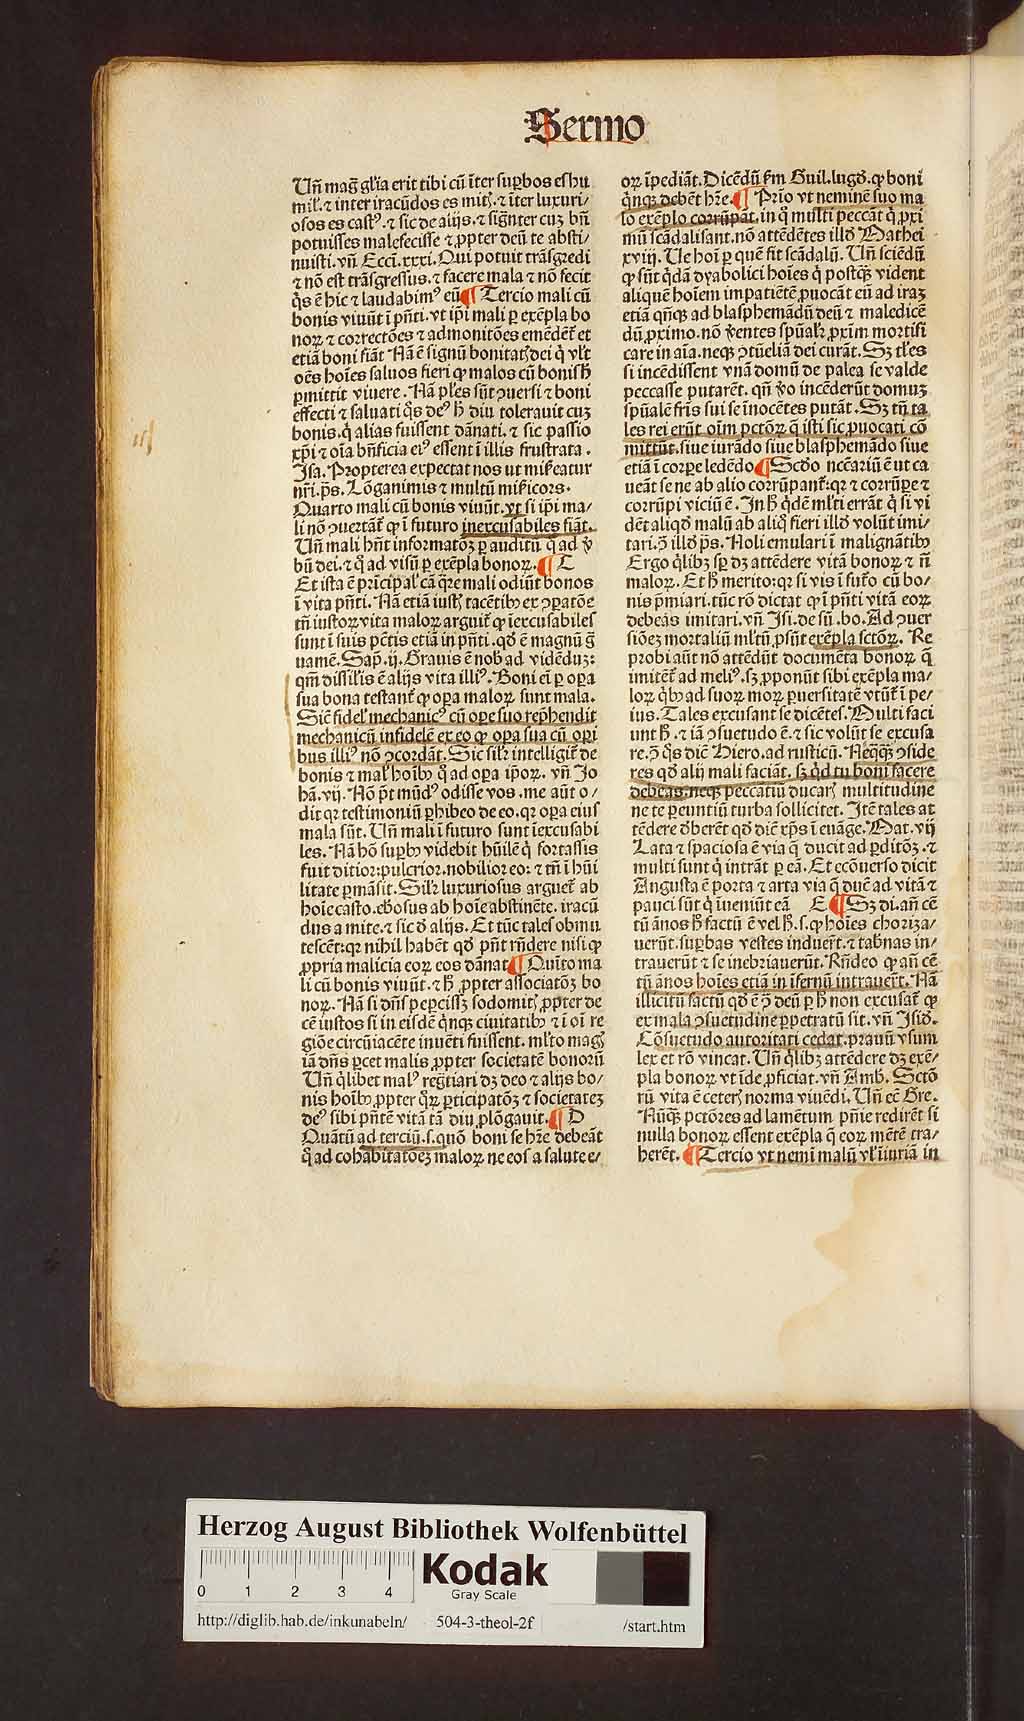 Sermo
Uñ mag̃ gl̃ia erit tibi cū īter suꝑbos es hu
mil'. ⁊ inter iracūdos es mitꝭ. ⁊ īter luxuri/
osos es castꝰ. ⁊ sic de alijs. ⁊ sigñter cuz bñ
potuisses malefecisse ⁊ ꝓpter deū te absti/
nuisti. vñ. Ecci. xxxi. Qui potuit trãsgredi
⁊ nō est trãsgressus. ⁊ facere mala ⁊ nō fecit
q̇s ē hic ⁊ laudabimꝰ eū ¶ Tercio mali cū
bonis viuūt ī pñti. vt ip̄i mali ꝑ exẽpla bo
noꝝ ⁊ correctões ⁊ admonitões emẽdẽt̃ et
etiã boni fiãt Nã ē signū bonitatꝭ dei q̇ vl't
oẽs hoĩes saluos fieri ꝙ malos cū bonis ħ
ꝑmittit viuere. Nã pl'es sũt ꝯuersi ⁊ boni
effecti ⁊ saluati q̇s deꝰ ħ diu tolerauit cuz
bonis. q̇ alias fuissent dãnati. ⁊ sic passio
xp̄i ⁊ oĩa bñficia eiꝰ essent ī illis frustrata.
Jsa. Propterea expectat nos ut miꝭeatur
nr̄i. ps̄. Lõganimis ⁊ multū miꝭicors.
Quarto mali cū bonis viuūt. vt si ip̄i ma/
li nō ꝯuertãt̃ ꝙ ī futuro inexcusabiles fiãt.
Uñ mali hñt informatōꝫ ꝑ auditū q̃ ad v̄
bū dei. ⁊ q̃ ad visū ꝑ exẽpla bonoꝝ. ¶ C
Et ista ē prīcipal' cã q̃re mali odiũt bonos
ī vita pñti. Nã etiã iustꝭ tacẽtibꝰ ex ꝯꝑatōe
tñ iustoꝝ vita maloꝝ arguit̃ ꝙ īexcusabiles
sunt ī suis pc̄tis etiã in pñti. qd̄ ē magnū g̃
uamẽ. Sap̄. ij. Grauis ē nob̃ ad vidẽduꝫ:
qm̄ dissil'is ē alijs vita illiꝰ. Boni eī ꝑ oꝑa
sua bona testant̃ ꝙ oꝑa maloꝝ sunt mala.
Sic̄ fidel' mechanicꝰ cū oꝑe suo rep̄hendit
mechanicū infidelẽ ex eo ꝙ oꝑa sua cū oꝑi
bus illiꝰ nō ꝯcordãt. Sic sil'r intelligit̃ de
bonis ⁊ mal' hoĩbꝰ q̃ ad oꝑa ip̄oꝝ. vñ Jo
hã. vij. Nō pt̄ mūdꝰ odisse vos. me aũt o/
dit qꝛ testimoniū ꝑhibeo de eo. qꝛ oꝑa eius
mala sũt. Uñ mali ī futuro sunt īexcusabi
les. Nã hō suꝑbꝰ videbit hũilẽ q̇ fortassis
fuit ditior: pulcrior. nobilior eo: ⁊ tñ ī hũi
litate ꝑmãsit. Sil'r luxuriosus arguet̃ ab
hoĩe casto. ebͦosus ab hoĩe abstinẽte. iracū
dus a mite. ⁊ sic d̄ alijs. Et tūc tales obmu
tescẽt: qꝛ nihil habẽt qd̄ pñt rñdere nisi ꝙ
ꝓpria malicia eoꝝ eos dãnat ¶ Quīto ma
li cū bonis viuūt. ⁊ ħ ꝓpter associatōꝫ bo
noꝝ. Nã si dñs peꝑcissꝫ sodomitꝭ ꝓpter de
cẽ iustos si in eisdẽ q̇nqꝫ ciuitatibꝰ ⁊ ī oī re
giōe circūiacẽte inuẽti fuissent. ml'to magꝭ
iã dñs ꝑcet malis ꝓpter societatẽ bonorū
Uñ q̇libet malꝰ reg̃tiari dꝫ deo ⁊ alijs bo/
nis hoĩbꝰ ꝓpter q̇ꝝ ꝑticipatōꝫ ⁊ societatez
deꝰ sibi pñtẽ vitã tã diu ꝓlõgauit. ¶ D
Quãtū ad terciū. s. quõ boni se hr̃e debeãt
q̃ ad cohabitatōeꝫ maloꝝ ne eos a salute e/
oꝝ īpediãt. Dicẽdū fm Guil. lugd̄. ꝙ boni
q̇nqꝫ debẽt hr̃e. ¶ Prīo vt neminẽ suo ma
lo exẽplo corrūpãt. in q̇ multi peccãt q̇ ꝓxi
mū scãdalisant. nō attẽdẽtes illd̄ Mathei
xviij. Ue hoĩ ꝑ quẽ fit scãdalū. Uñ sciẽdū
ꝙ sũt q̇dã dyabolici hoĩes q̇ postqꝫ vident
aliquẽ hoĩem impatiẽtẽ ꝓuocãt eū ad iraꝫ
etiã qñqꝫ ad blasphemãdū deū ⁊ maledicẽ
dū ꝓximo. nō v̄entes sp̄ual'r ꝓxīm mortifi
care in aĩa. neqꝫ ꝯtūeliã dei curãt. Sꝫ tl'es
si incẽdissent vnã domū de palea se valde
peccasse putarẽt. qñ v̄o incẽderūt domuꝫ
sp̄ualẽ fr̃is sui se inocẽtes putãt. Sꝫ tñ ta
les rei erūt oĩm pctōꝝ q̃ isti sic ꝓuocati cō
mittūt. siue iurãdo siue blasphemãdo siue
etiã ī corꝑe ledẽdo ¶ Scd̄o ncc̄ariū ē ut ca
ueãt se ne ab alio corrūpant̃: qꝛ ⁊ corrūꝑe ⁊
corrūpi viciū ē. Jn ħ q̇dẽ ml'ti errãt q̇ si vi
dẽt aliqd̄ malū ab aliq̇ fieri illd̄ volūt imi/
tari. ꝯ̄ illd̄ ps̄. Noli emulari ī malignãtibꝰ
Ergo q̇libꝫ sꝑ dꝫ attẽdere vitã bonoꝝ ⁊ ñ
maloꝝ. Et ħ merito: qꝛ si vis ī fut̃o cū bo/
nis p̄miari. tūc rō dictat ꝙ ī pñti vitã eoꝝ
debeas imitari. vñ Jsi. de sū. bo. Ad ꝯuer
siōeꝫ mortaliū ml'tū ꝓsũt exẽpla sctōꝝ. Re
probi aũt nō attẽdũt documẽta bonoꝝ q̃
imitẽt̃ ad meliꝰ. sꝫ ꝓponũt sibi exẽpla ma/
loꝝ q̇bꝰ ad suoꝝ moꝝ ꝑuersitatẽ vtũt̃ ī pe/
ius. Tales excusant se dicẽtes. Multi faci
unt ħ. ⁊ iã ꝯsuetudo ē. ⁊ sic volūt se excusa
re. ꝯ̄ q̇s dic̄ Hiero. ad rusticū. Neq̃qꝫ ꝯside
res qd̄ alij mali faciãt. sꝫ q̇d tu boni facere
debeas. neqꝫ peccatiū ducarꝭ multitudine
ne te ꝑeuntiū turba sollicitet. Jtẽ tales at
tẽdere d̄berẽt qd̄ dic̄ xp̄s ī euãge. Mat. vij
Lata ⁊ spaciosa ē via q̃ ducit ad ꝑditōꝫ. ⁊
multi sunt q̇ intrãt ꝑ eã. Et ecōuerso dicit
Angusta ē porta ⁊ arta via q̃ ducẽ ad vitã ⁊
pauci sũt q̇ īueniūt eã E ¶ Sꝫ di. añ cẽ
tū ãnos ħ factū ē vel ħ. s. ꝙ hoĩes choriza/
uerūt. suꝑbas vestes induer̄t. ⁊ tab̃nas in/
trauerūt ⁊ se inebriauerūt. Rñdeo ꝙ añ cẽ
tū ãnos hoĩes etiã in īfernū intrauer̄t. Nã
illicitū factū qd̄ ē ꝯ̄ deū ꝑ ħ non excusat̃ ꝙ
ex mala ꝯsuetudine ꝑpetratū sit. vñ Jsid̄.
Cōsuetudo autoritati cedat. prauū vsum
lex et rō vincat. Uñ q̇libꝫ attẽdere dꝫ exẽ/
pla bonoꝝ vt īde ꝓficiat. vñ Amb. Sctō
rū vita ē ceterꝭ norma viuẽdi. Uñ ec̄ Gre.
Nūqꝫ pctōres ad lamẽtum pñie redirẽt si
nulla bonoꝝ essent exẽpla q̃ eoꝝ mẽtẽ tra/
herẽt. ¶ Tercio vt nemī malū vl' iniuriã in
Herzog August Bibliothek Wolfenbüttel
0 1 2 3 4
Kodak
Gray Scale
http://diglib.hab.de/inkunabeln/ 504-3-theol-2f /start.htm